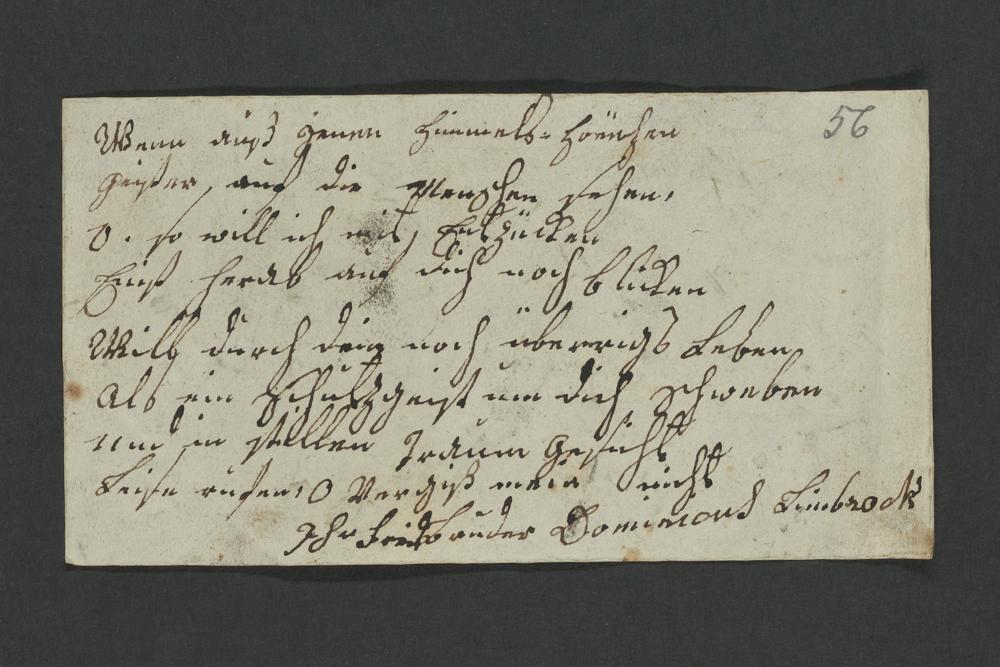 56
Wenn auß Jenen Himmels-Höhen
Geister, auf die Menschen sehen,
O. so will ich mit, Entzücken
Einst herab auf dich noch blicken
Will durch dein noch überrigs Leben
Als ein Schutzgeist um dich schweben
Und in stillen Traum Gesicht
Leise rufen, O Vergiß mein nicht
Ihr Limbrock